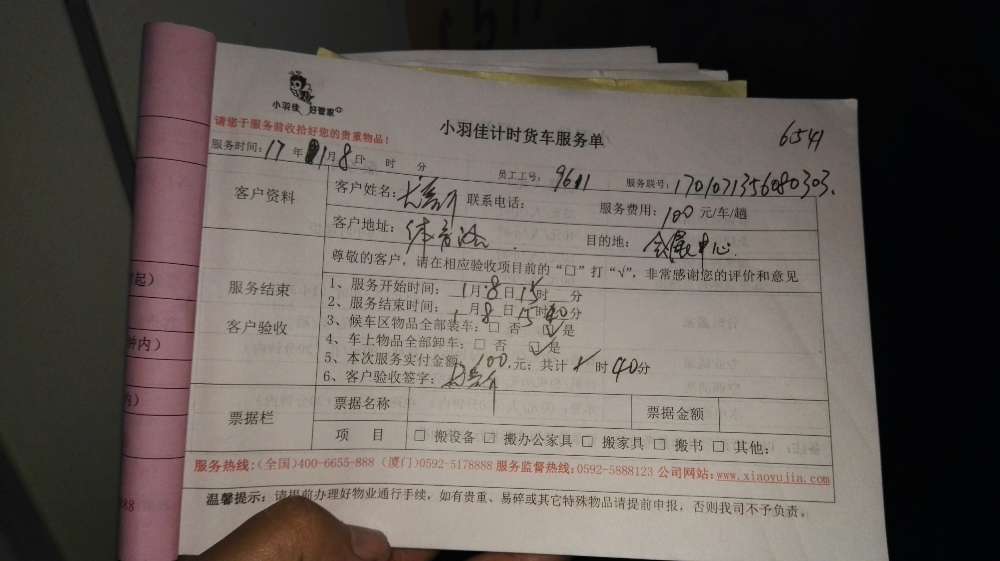 小羽佳 好管家
小羽佳计时货车服务单
6541
请您于服务前收拾好您的贵重物品！
服务时间：17年 1月8日 时 分 员工工号：9611 服务联号：1701071356080303
客户资料
客户姓名： 联系电话： 服务费用：100元/车/趟
客户地址： 目的地：会展中心
尊敬的客户，请在相应验收项目前的“□”打“√”，非常感谢您的评价和意见
服务结束
客户验收
1、服务开始时间：1月8日15时 分
2、服务结束时间：1月8日15时40分
3、候车区物品全部装车：□ 否 □是
4、车上物品全部卸车：□ 否 □是
5、本次服务实付金额：100.元；共计 时40分
6、客户验收签字：
票据栏
票据名称 票据金额
项 目 □ 搬设备 □ 搬办公家具 □ 搬家具 □ 搬书 □ 其他：
服务热线：(全国)400-6655-888 (厦门)0592-5178888 服务监督热线：0592-5888123 公司网站：www.xiaoyujia.com
温馨提示：请提前办理好物业通行手续，如有贵重、易碎或其它特殊物品请提前申报，否则我司不予负责。